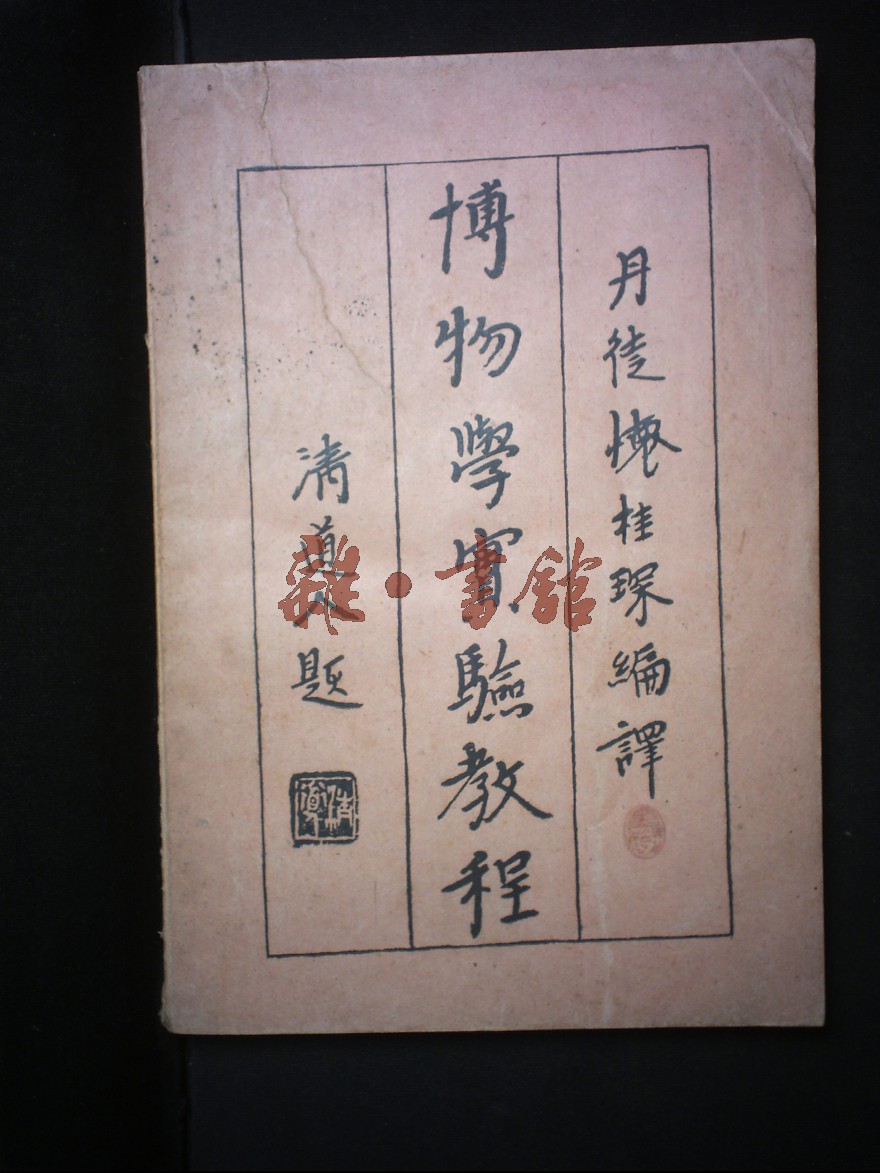 丹徒懷桂琛編譯
博物學實驗教程
清道人題
雜·書館